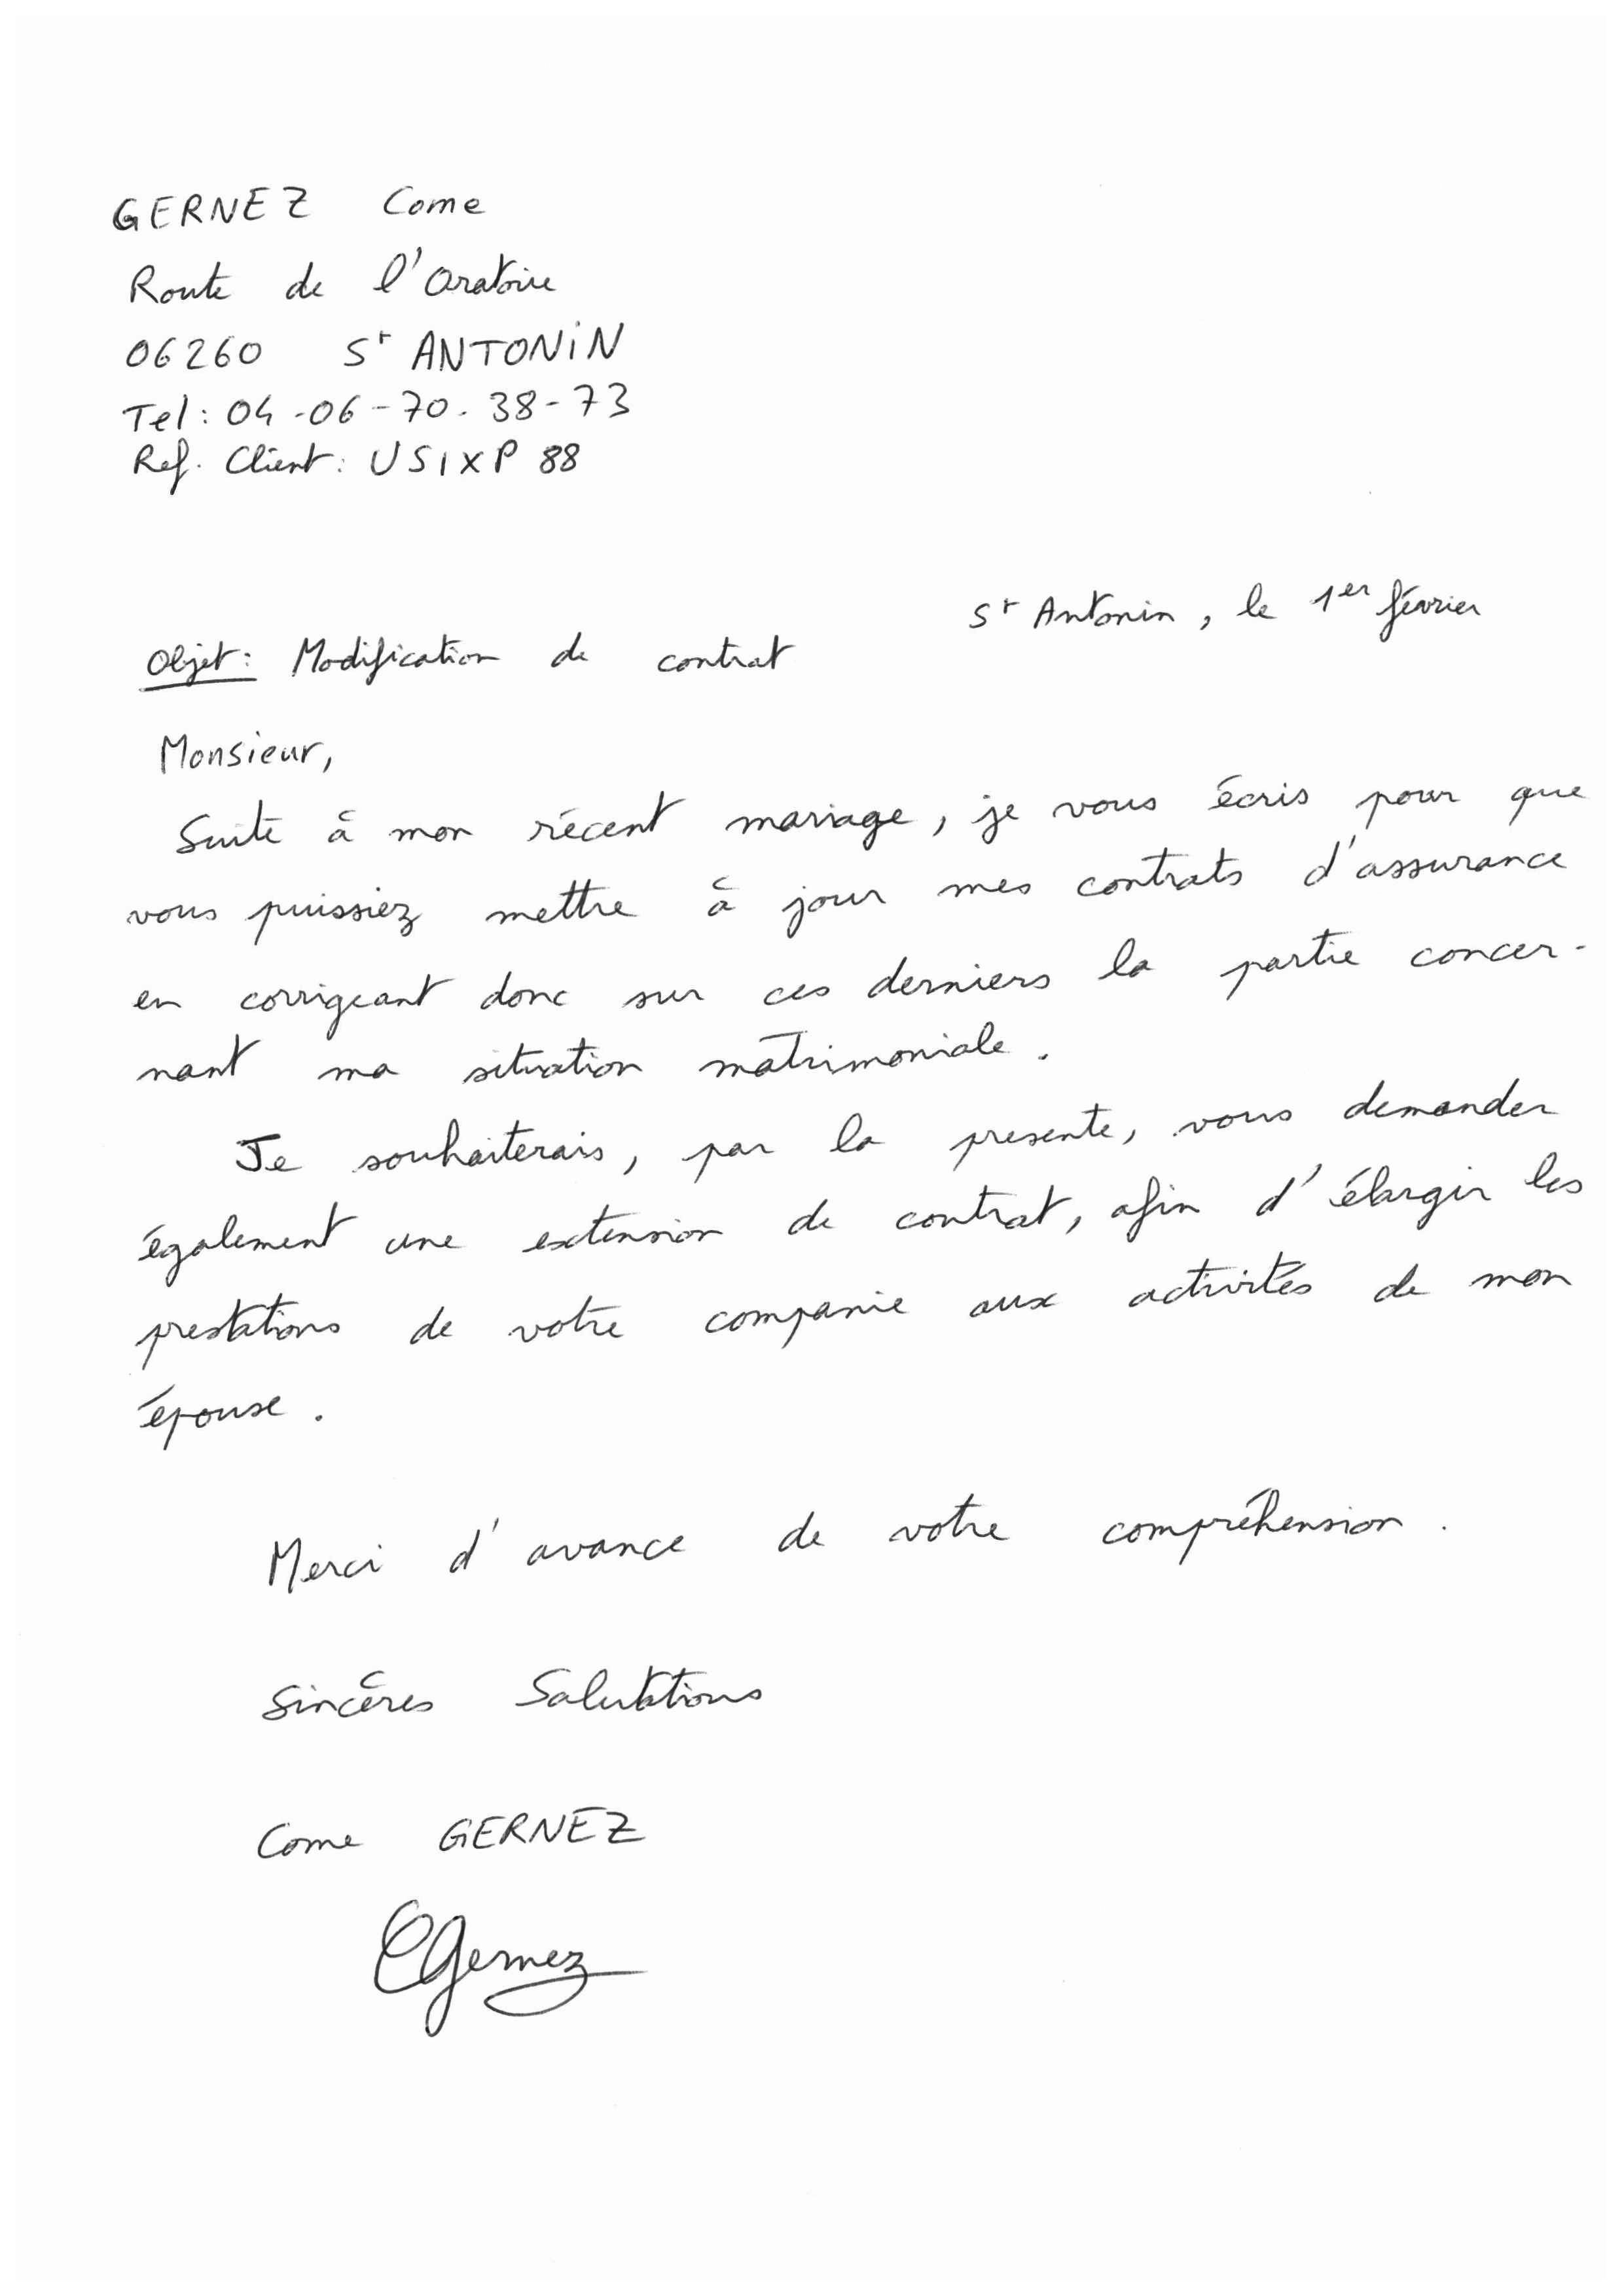 GERNEZ Come
Route de l'Oratoire
06260 St ANTONIN
Tel: 04-06-70.38-73
Ref. Client: USIXP 88
St Antonin, le 1er février
Objet: Modification de contrat
Monsieur,
Suite à mon récent mariage, je vous écris pour que
vous puissiez mettre à jour mes contrats d'assurance
en corrigeant donc sur ces derniers la partie concer-
nant ma situation matrimoniale.
Je souhaiterais, par la presente, vous demander
également une extension de contrat, afin d'élargir les
prestations de votre companie aux activités de mon
épouse.
Merci d'avance de votre compréhension.
Sincères Salutations
Come GERNEZ
CGernez